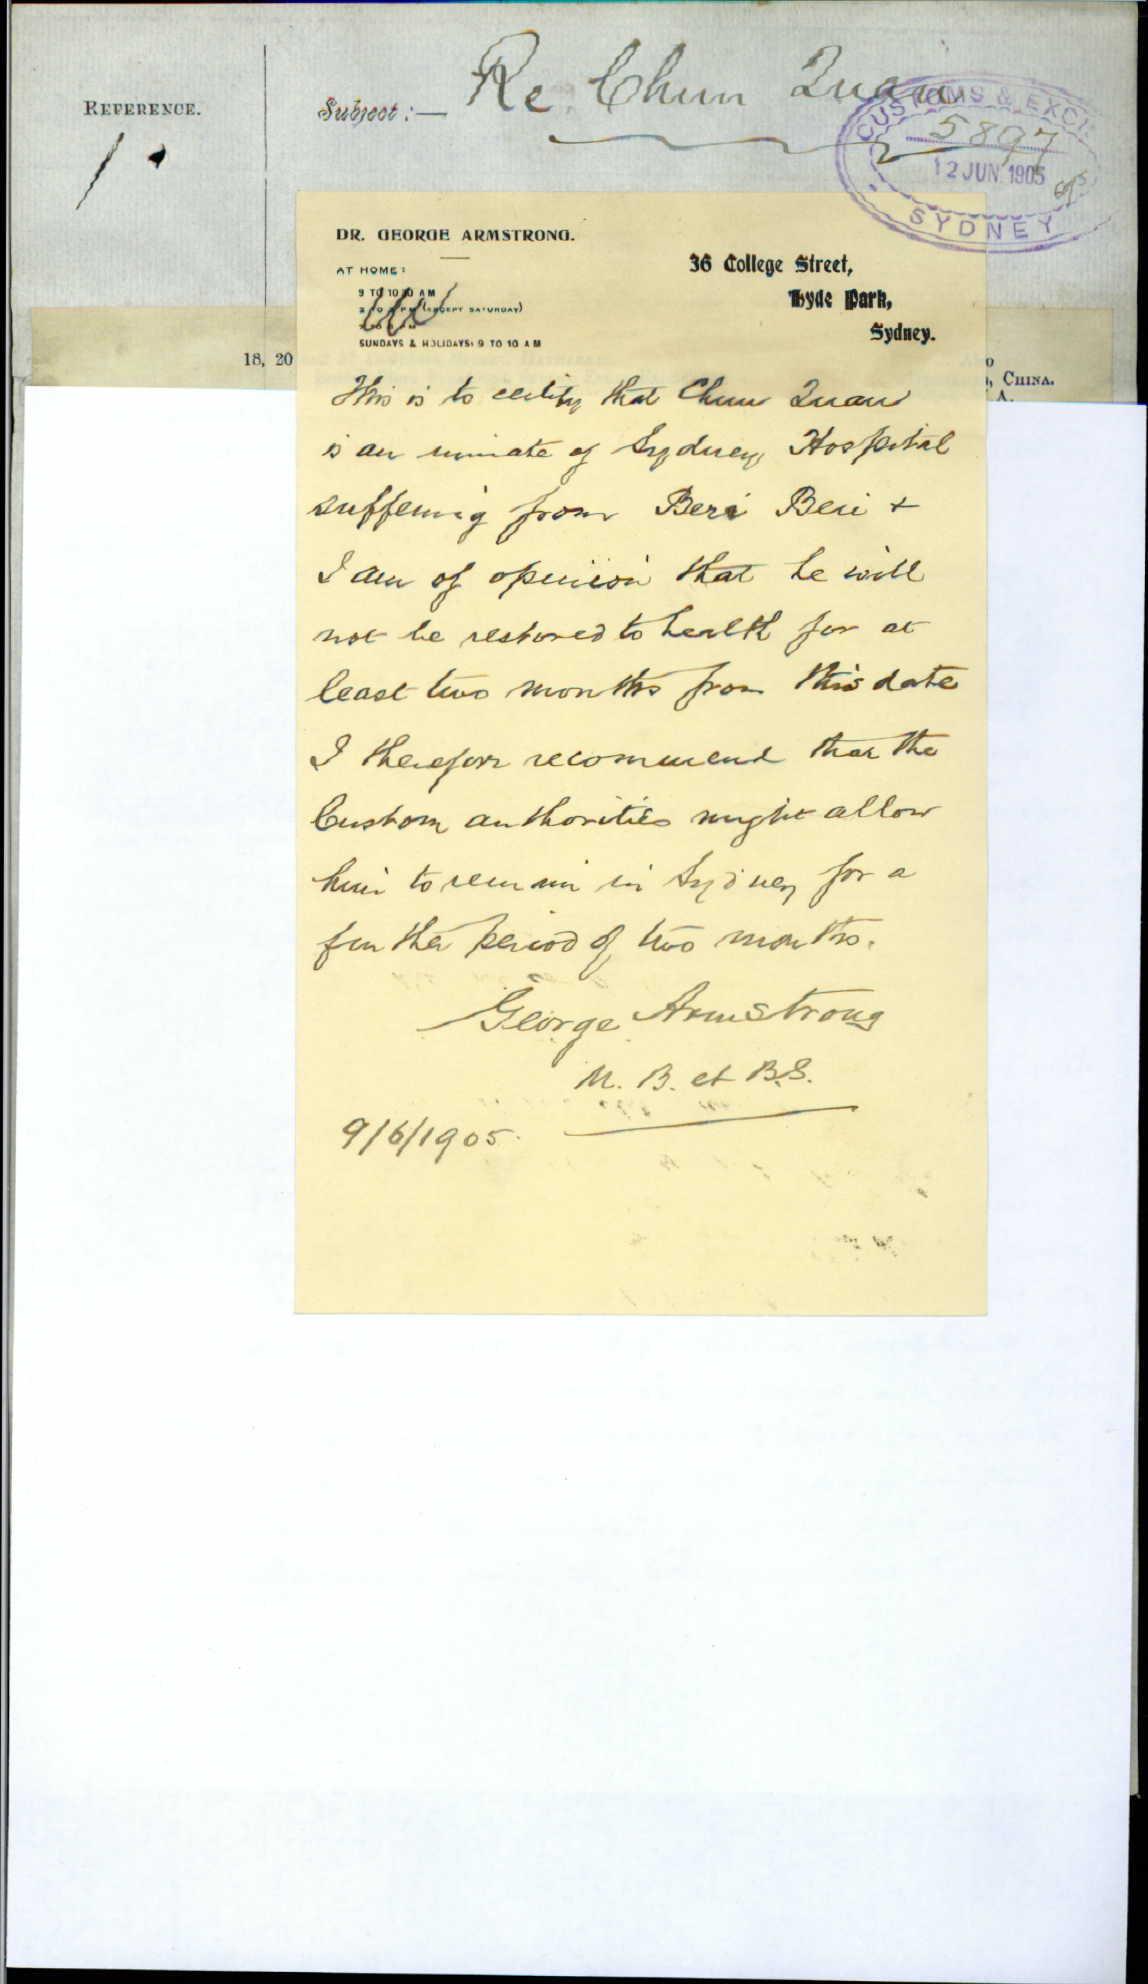 REFERENCE.
Subject:— Re Chun Quan
CUSTOMS & EXCI
5897
12 JUN. 1905
SYDNEY
1.
DR. GEORGE ARMSTRONG.
AT HOME:
9 TO 10 A M
(EXCEPT SATURDAY)
SUNDAYS & HOLIDAYS: 9 TO 10 A M
36 College Street,
Hyde Park,
Sydney.
18, 20
, CHINA.
This is to certify that Chun Quan
is an inmate of Sydney Hospital
suffering from Beri Beri +
I am of opinion that he will
not be restored to health for at
least two months from this date
I therefore recommend that the
Custom authorities might allow
him to remain in Sydney for a
further period of two months.
George Armstrong
M. B. et B.S.
9/6/1905.